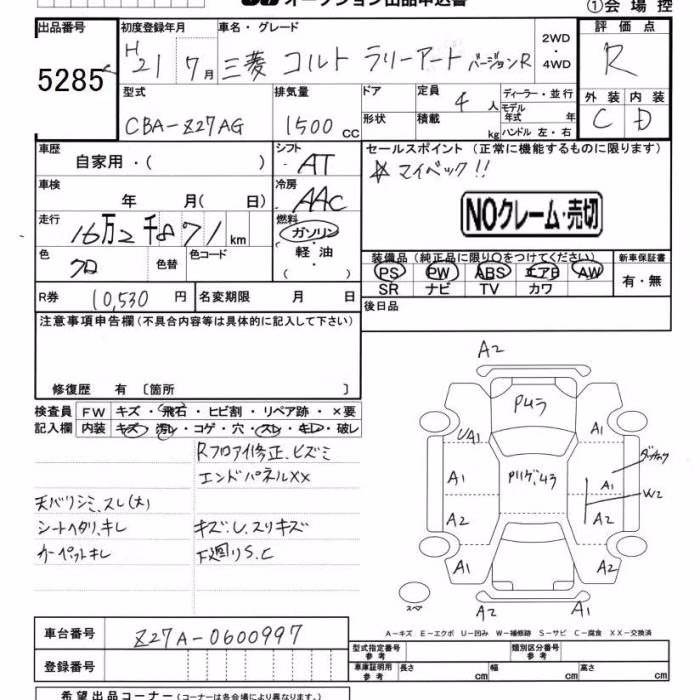 オークション出品申込書
①会場控
出品番号 初度登録年月 車名・グレード 2WD・4WD 評価点
5285 H21 7月 三菱 コルト ラリーアート バージョンR R
型式 排気量 ドア 定員 4人 ディーラー・並行 外装 内装
CBA-Z27AG 1500cc 形状 積載 kg モデル年式 年 ハンドル 左・右 C D
車歴 自家用・( ) シフト AT セールスポイント (正常に機能するものに限ります)
車検 年 月( 日) 冷房 AAC ☆マイベック!!
NOクレーム・売切
走行 16万2千871km 燃料 ガソリン・軽油・( )
色 クロ 色替 色コード
装備品 (純正品に限り○をつけてください) 新車保証書
PS PW ABS エアB AW 有・無
SR ナビ TV カワ
R券 10,530円 名変期限 月 日 後日品
注意事項申告欄 (不具合内容等は具体的に記入して下さい)
修復歴 有 〔箇所 〕
検査員 FW キズ・飛石・ヒビ割・リペア跡・×要
記入欄 内装 キズ・汚レ・コゲ・穴・スレ・キレ・破レ
Rフロアイ修正、ヒズミ
エンドパネルXX
天バリシミ、スレ(大)
シートヘタリ、キレ キズ、U、スリキズ
カーペットキレ 下廻りS.C
A2
Pムラ
UA1
A1 A1
A2 W2
A2
A1 A2
スペア
A2 A1
A-キズ E-エクボ U-凹み W-補修跡 S-サビ C-腐食 XX-交換済
車台番号 Z27A-0600997
型式指定番号 参考 類別区分番号 参考
登録番号
車庫証明用 参考 長さ cm 幅 cm 高さ cm
希望出品コーナー (コーナーは各会場により異なります。)